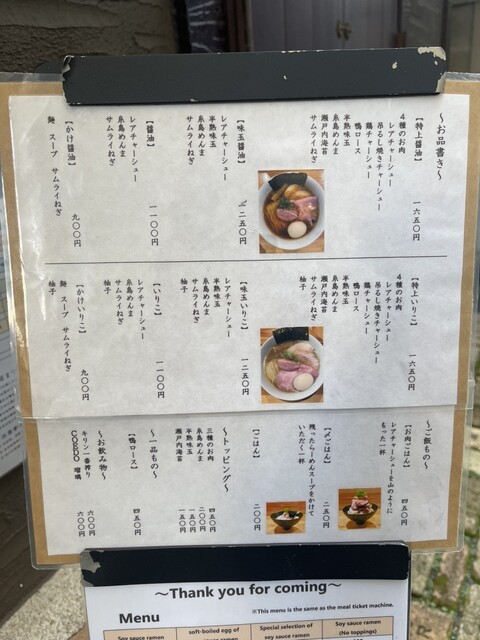 〜お品書き〜
【特上醤油】 一六五〇円
４種のお肉
レアチャーシュー
吊るし焼きチャーシュー
鶏チャーシュー
鴨ロース
半熟味玉
糸島めんま
瀬戸内海苔
サムライねぎ
【味玉醤油】 一二五〇円
レアチャーシュー
半熟味玉
糸島めんま
サムライねぎ
【醤油】 一一〇〇円
レアチャーシュー
糸島めんま
サムライねぎ
【かけ醤油】 九〇〇円
麺 スープ サムライねぎ
【特上いりこ】 一六五〇円
４種のお肉
レアチャーシュー
吊るし焼きチャーシュー
鶏チャーシュー
鴨ロース
半熟味玉
糸島めんま
瀬戸内海苔
サムライねぎ
柚子
【味玉いりこ】 一二五〇円
レアチャーシュー
半熟味玉
糸島めんま
サムライねぎ
柚子
【いりこ】 一一〇〇円
レアチャーシュー
糸島めんま
サムライねぎ
柚子
【かけいりこ】 九〇〇円
麺 スープ サムライねぎ
柚子
〜ご飯もの〜
【お肉ごはん】 四五〇円
レアチャーシューを山のように
もった一杯
【〆ごはん】 二五〇円
残ったらーめんスープをかけて
いただく一杯
【ごはん】 二〇〇円
〜トッピング〜
三種のお肉 四五〇円
糸島めんま 二〇〇円
半熟味玉 一五〇円
瀬戸内海苔 一五〇円
〜一品もの〜
【鴨ロース】 四五〇円
〜お飲み物〜
キリン一番搾り 六〇〇円
COEDO 瑠璃 六〇〇円
〜Thank you for coming〜
Menu
※This menu is the same as the meal ticket machine.
Soy sauce ramen
soft-boiled egg of
Special selection of
soy sauce ramen
Soy sauce ramen
(No toppings)